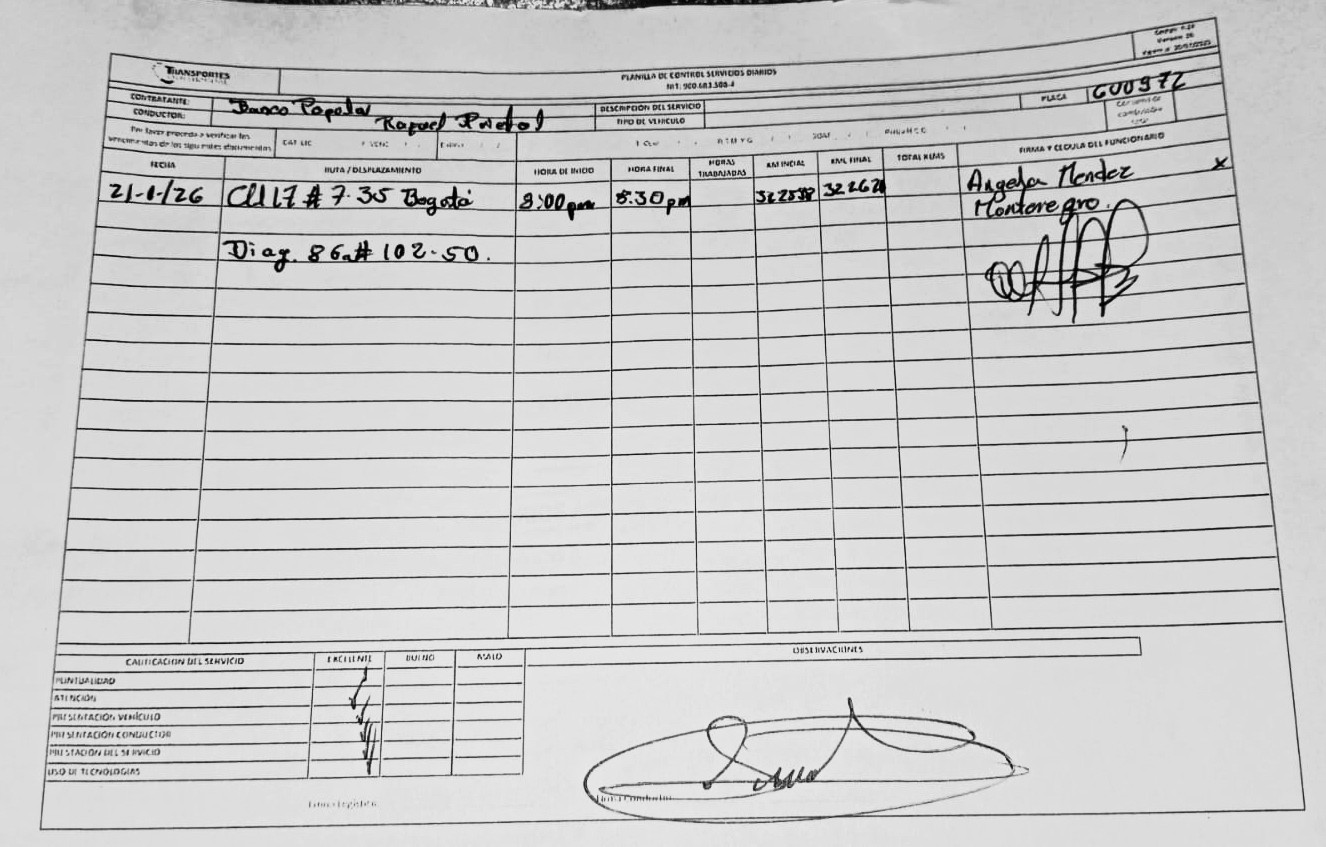 TRANSPORTES
PLANILLA DE CONTROL SERVICIOS DIARIOS
CONTRATANTE: Banco Popular
DESCRIPCION DEL SERVICIO
PLACA GUU972
CONDUCTOR: Rafael Prieto
TIPO DE VEHICULO
Por favor proceda a verificar los
vencimientos de los siguientes documentos
CAT LIC
FECHA RUTA / DESPLAZAMIENTO HORA DE INICIO HORA FINAL HORAS TRABAJADAS KM INICIAL KML FINAL TOTAL KLMS FIRMA Y CEDULA DEL FUNCIONARIO
21-1/26 Cll 17 # 7-35 Bogotá 8:00pm 8:30pm 322538 Angela Mendez x
Montenegro.
Diag. 86a # 102-50.
CALIFICACION DEL SERVICIO EXCELENTE BUENO MALO OBSERVACIONES
PUNTUALIDAD
ATENCIÓN
PRESENTACIÓN VEHÍCULO
PRESENTACIÓN CONDUCTOR
PRESTACIÓN DEL SERVICIO
USO DE TECNOLOGIAS
Firma Conductor